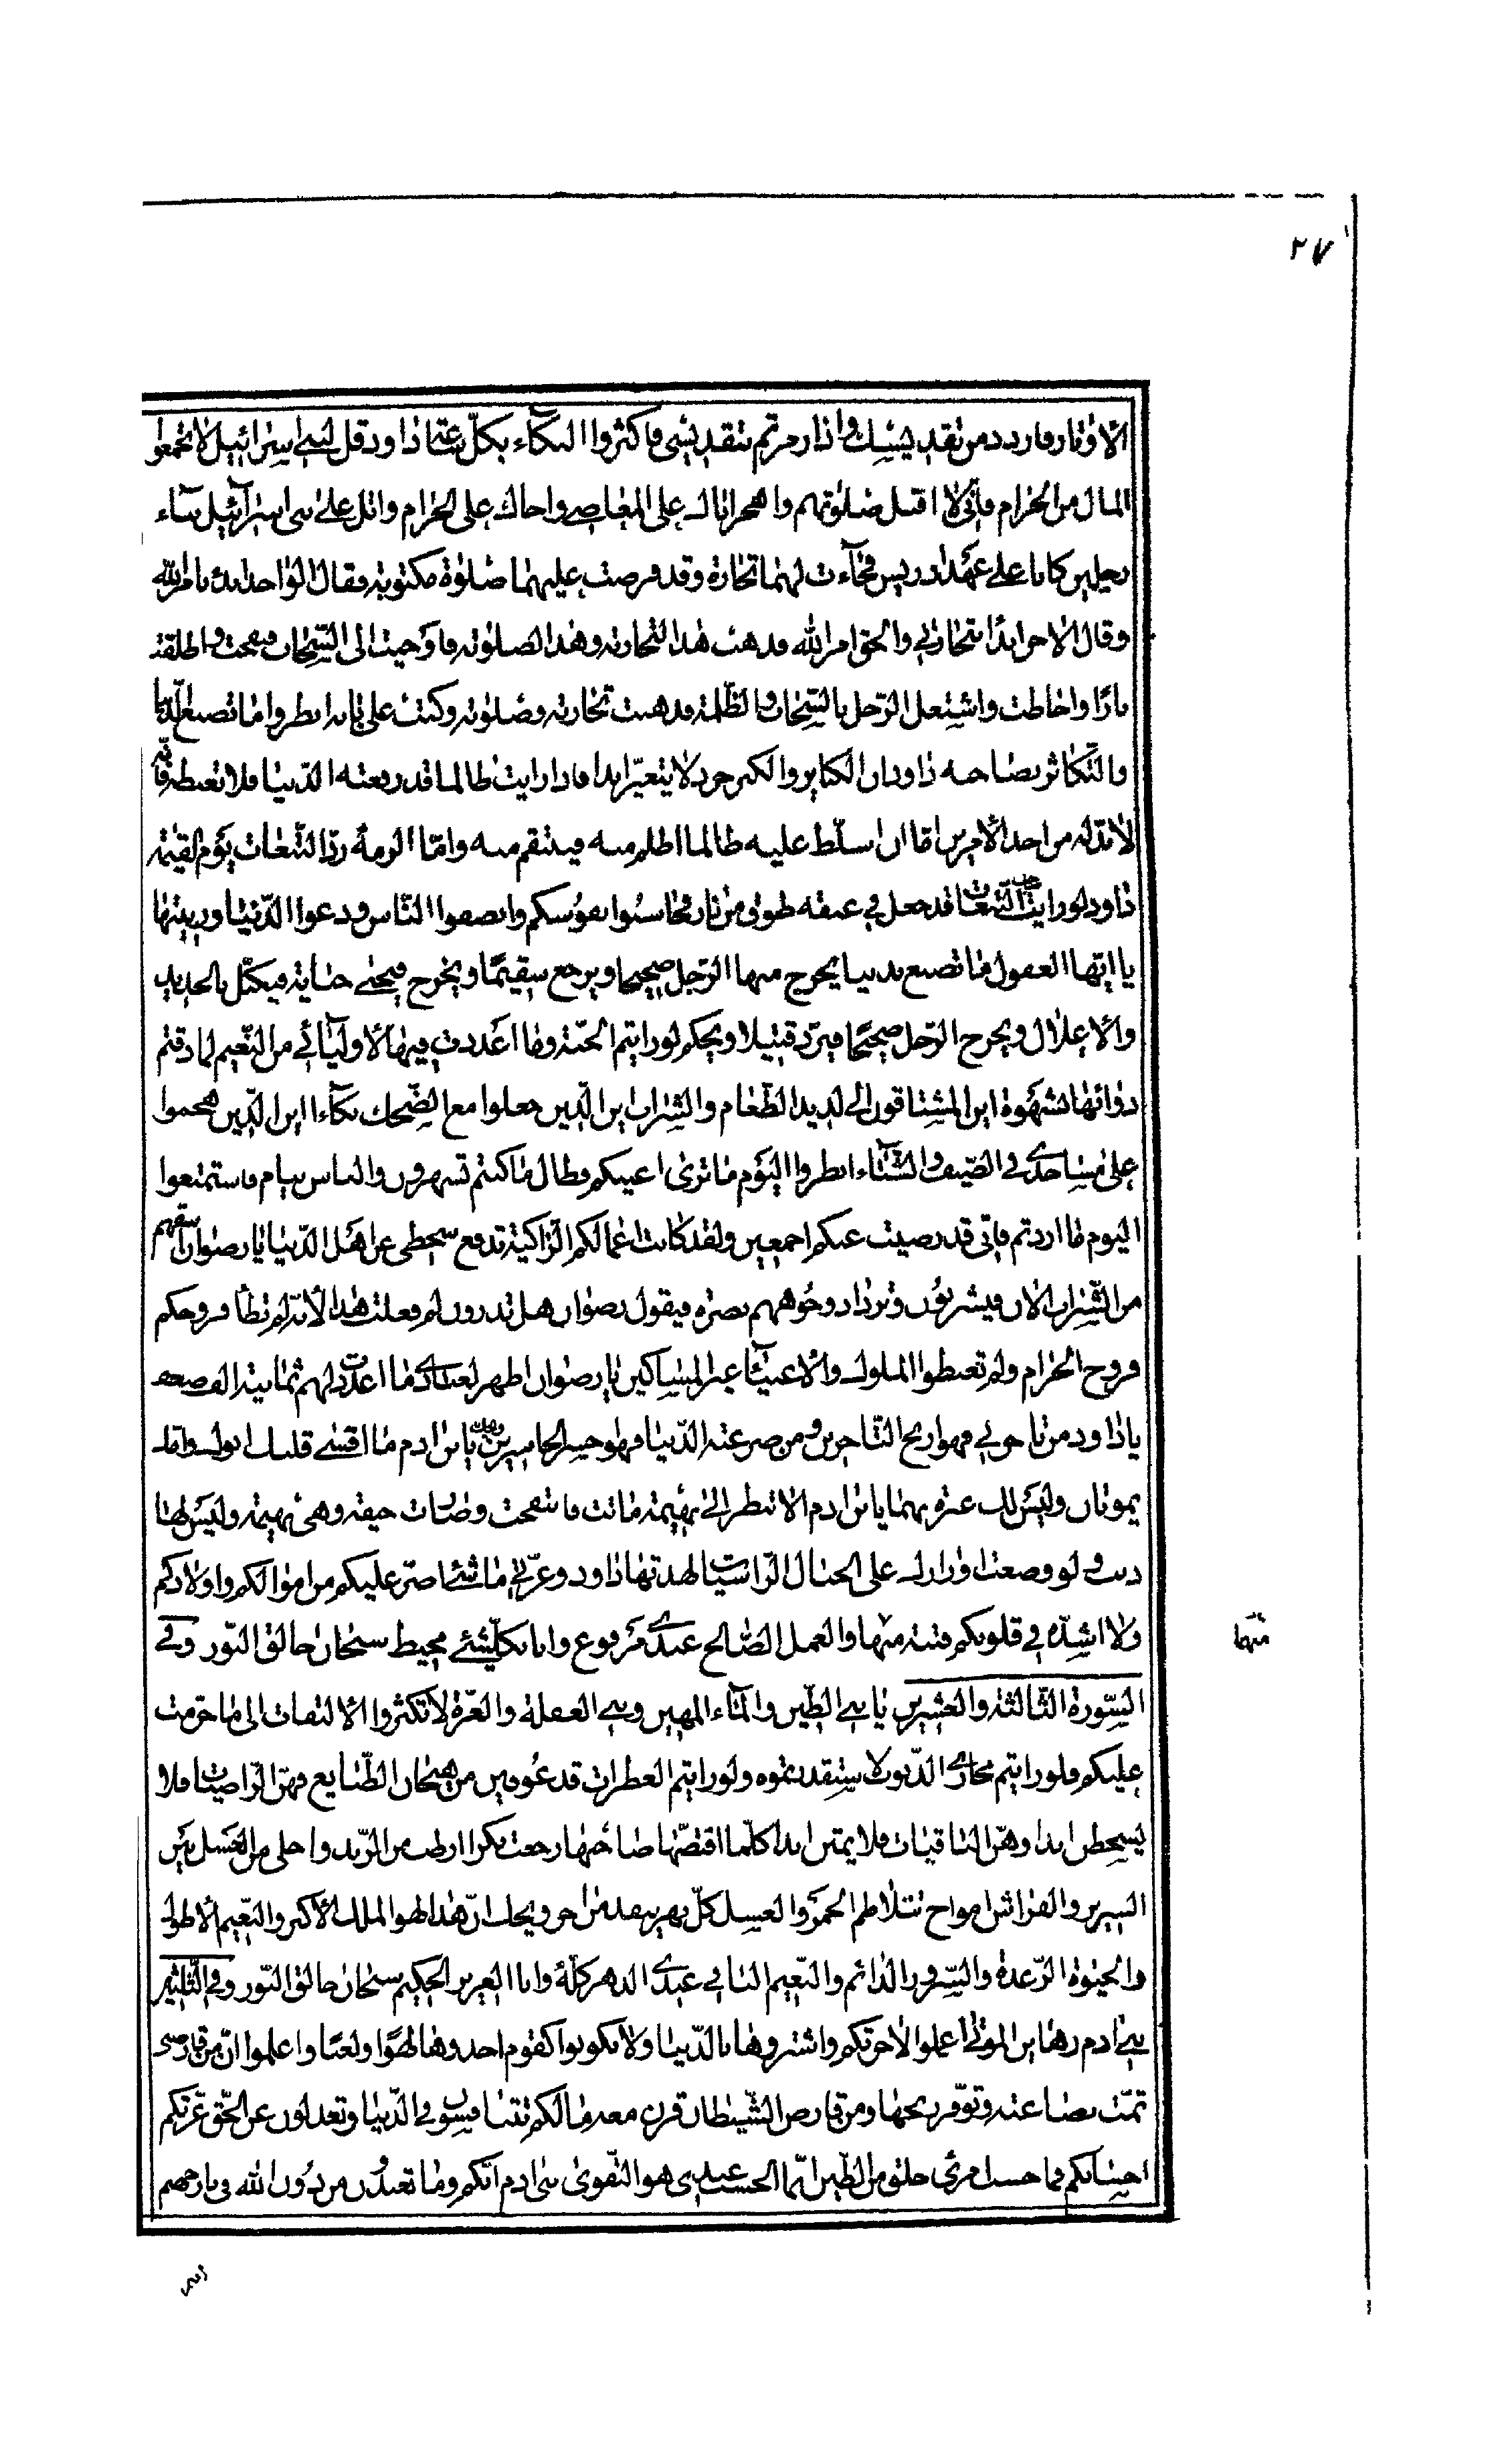 ٢٧
الاوتار فازدد من تقديسك واذا اردتم تقديسي فاكثروا البكاء بكل ساعة يا داود قل لبني اسرائيل لا تجمعوا
المال من الحرام فاني لا اقبل صلوتهم واهجر اباك على المعاصي واخاك على الحرام واتل على بني اسرائيل نباء
رجلين كانا على عهد ادريس فجآءت لهما تجارة وقد فرضت عليهما صلوة مكتوبة فقال الواحد ابدء بامر الله
وقال الاخر ابدأ بتجارتي والحق امر الله فذهب هذا لتجارته وهذا لصلوته فاوحيت الى السحاب فنفخت واطلقت
نارا واحاطت واشتعل الرجل بالسحاب والظلمة فذهبت تجارته وصلوته وكتب على بابه انظروا ما تصنع الدنيا
والتكاثر بصاحبه داود ان الكباير والكبر حرد لا يتغير ابدا فاذا رايت ظالما قد رفعته الدنيا فلا تغبطه فانه
لا بد له من احد الامرين اما ان اسلط عليه ظالما اظلم منه فينتقم منه واما الزمه رد التبعات يوم القيمة
داود لو رايت صاحب التبعات قد جعل في عنقه طوق من نار فحاسبوا نفوسكم وانصفوا الناس ودعوا الدنيا وزينتها
يا ايها الغفول ما تصنع بدنيا يخرج منها الرجل صحيحا ويرجع سقيما ويخرج فيجني جناية فيكبل بالحديد
والاغلال ويخرج الرجل صحيحا فيرد قتيلا ويحكم لو رايتم الجنة وما اعددت فيها لاوليائي من النعيم لما ذقتم
دوائها بشهوة اين المشتاقون الى لذيذ الطعام والشراب اين الذين جعلوا مع الضحك بكآءا اين الذين هجموا
على مساجدي في الصيف والشتاء انظروا اليوم ما ترى اعينكم فطال ما كنتم تسهرون والناس نيام فاستمتعوا
اليوم ما اردتم فاني قد رضيت عنكم اجمعين ولقد كانت اعمالكم الزاكية تدفع سخطي عن اهل الدنيا يا رضوان اسقهم
من الشراب الان فيشربون وتزداد وجوههم نضرة فيقول رضوان هل تدرون لم فعلت هذا لانه لم تطأ فروجكم
فروج الحرام ولم تغبطوا الملوك والاغنيآء غير المساكين يا رضوان اظهر لعبادي ما اعددت لهم ثمانية الف ضعف
يا داود من تاجرني فهو اربح التاجرين ومن صرعته الدنيا فهو اخسر الخاسرين ويحك يا بن ادم ما اقسى قلبك ابوك وامك
يموتان وليس لك عبرة بهما يا بن ادم الا تنظر الى بهيمة ماتت فانتفخت وصارت جيفة وهي بهيمة وليس لها
ذنب ولو وضعت اوزارك على الجبال الراسيات لهدتها داود وعزتي ما شئ اضر عليكم من اموالكم واولادكم
ولا اشده في قلوبكم فتنة منها والعمل الصالح عندي مرفوع وانا بكل شئ محيط سبحان خالق النور وفي
منهما
السورة الثالثة والعشرين يا بني الطين والمآء المهين وبني الغفلة والغرة لا تكثروا الالتفات الى ما حرمت
عليكم فلو رايتم مجاري الذنوب لاستقذرتموه ولو رايتم العطرات قد عوفين من هيجان الطبايع فهن الراضيات فلا
يسخطن ابدا وهن الباقيات فلا يمتن ابدا كلما اقتضها صاحبها رجعت بكرا ارطب من الزبد واحلى من العسل بين
السرير والفراش امواج تتلاطم الخمر والعسل كل نهر ينفد من اخر ويحك ان هذا لهو الملك الاكبر والنعيم الاطول
والحيوة الرغدة والسرور الدائم والنعيم الباقي عندي الدهر كله وانا العزيز الحكيم سبحان خالق النور وفي الثلثين
بني ادم رهاين الموتى اعملوا لاخرتكم واشتروها بالدنيا ولا تكونوا كقوم اخذوها لهوا ولعبا واعلموا ان من قارضني
تمت بضاعته وتوفر ربحها ومن قارض الشيطان قرن معه مالكم تتنافسون في الدنيا وتعدلون عن الحق غرتكم
احسابكم فما حسب امرئ خلق من الطين انما الحسب عندي هو التقوى بني ادم انكم وما تعبدون من دون الله في نار جهنم